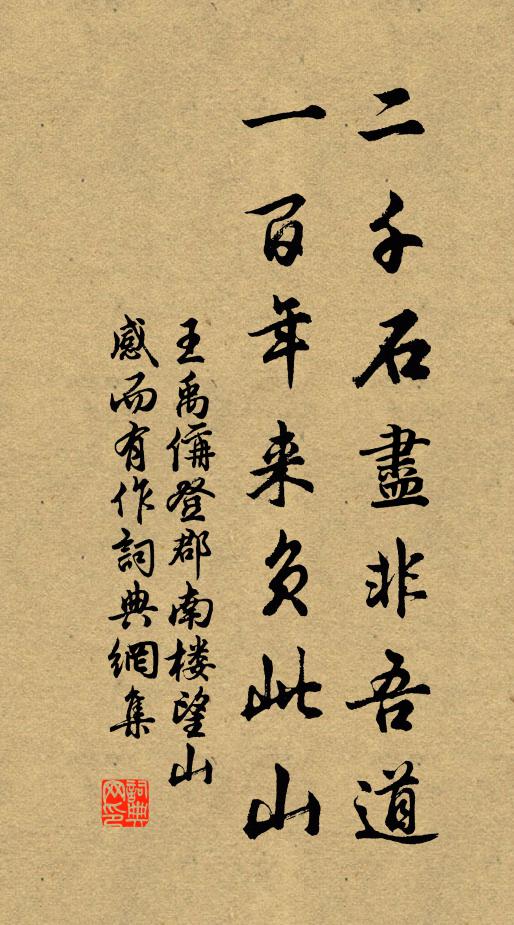 二千石盡非吾道
一百年来负此山
王禹偁登郡南楼望山
感而有作詞典網集
詞典
网印